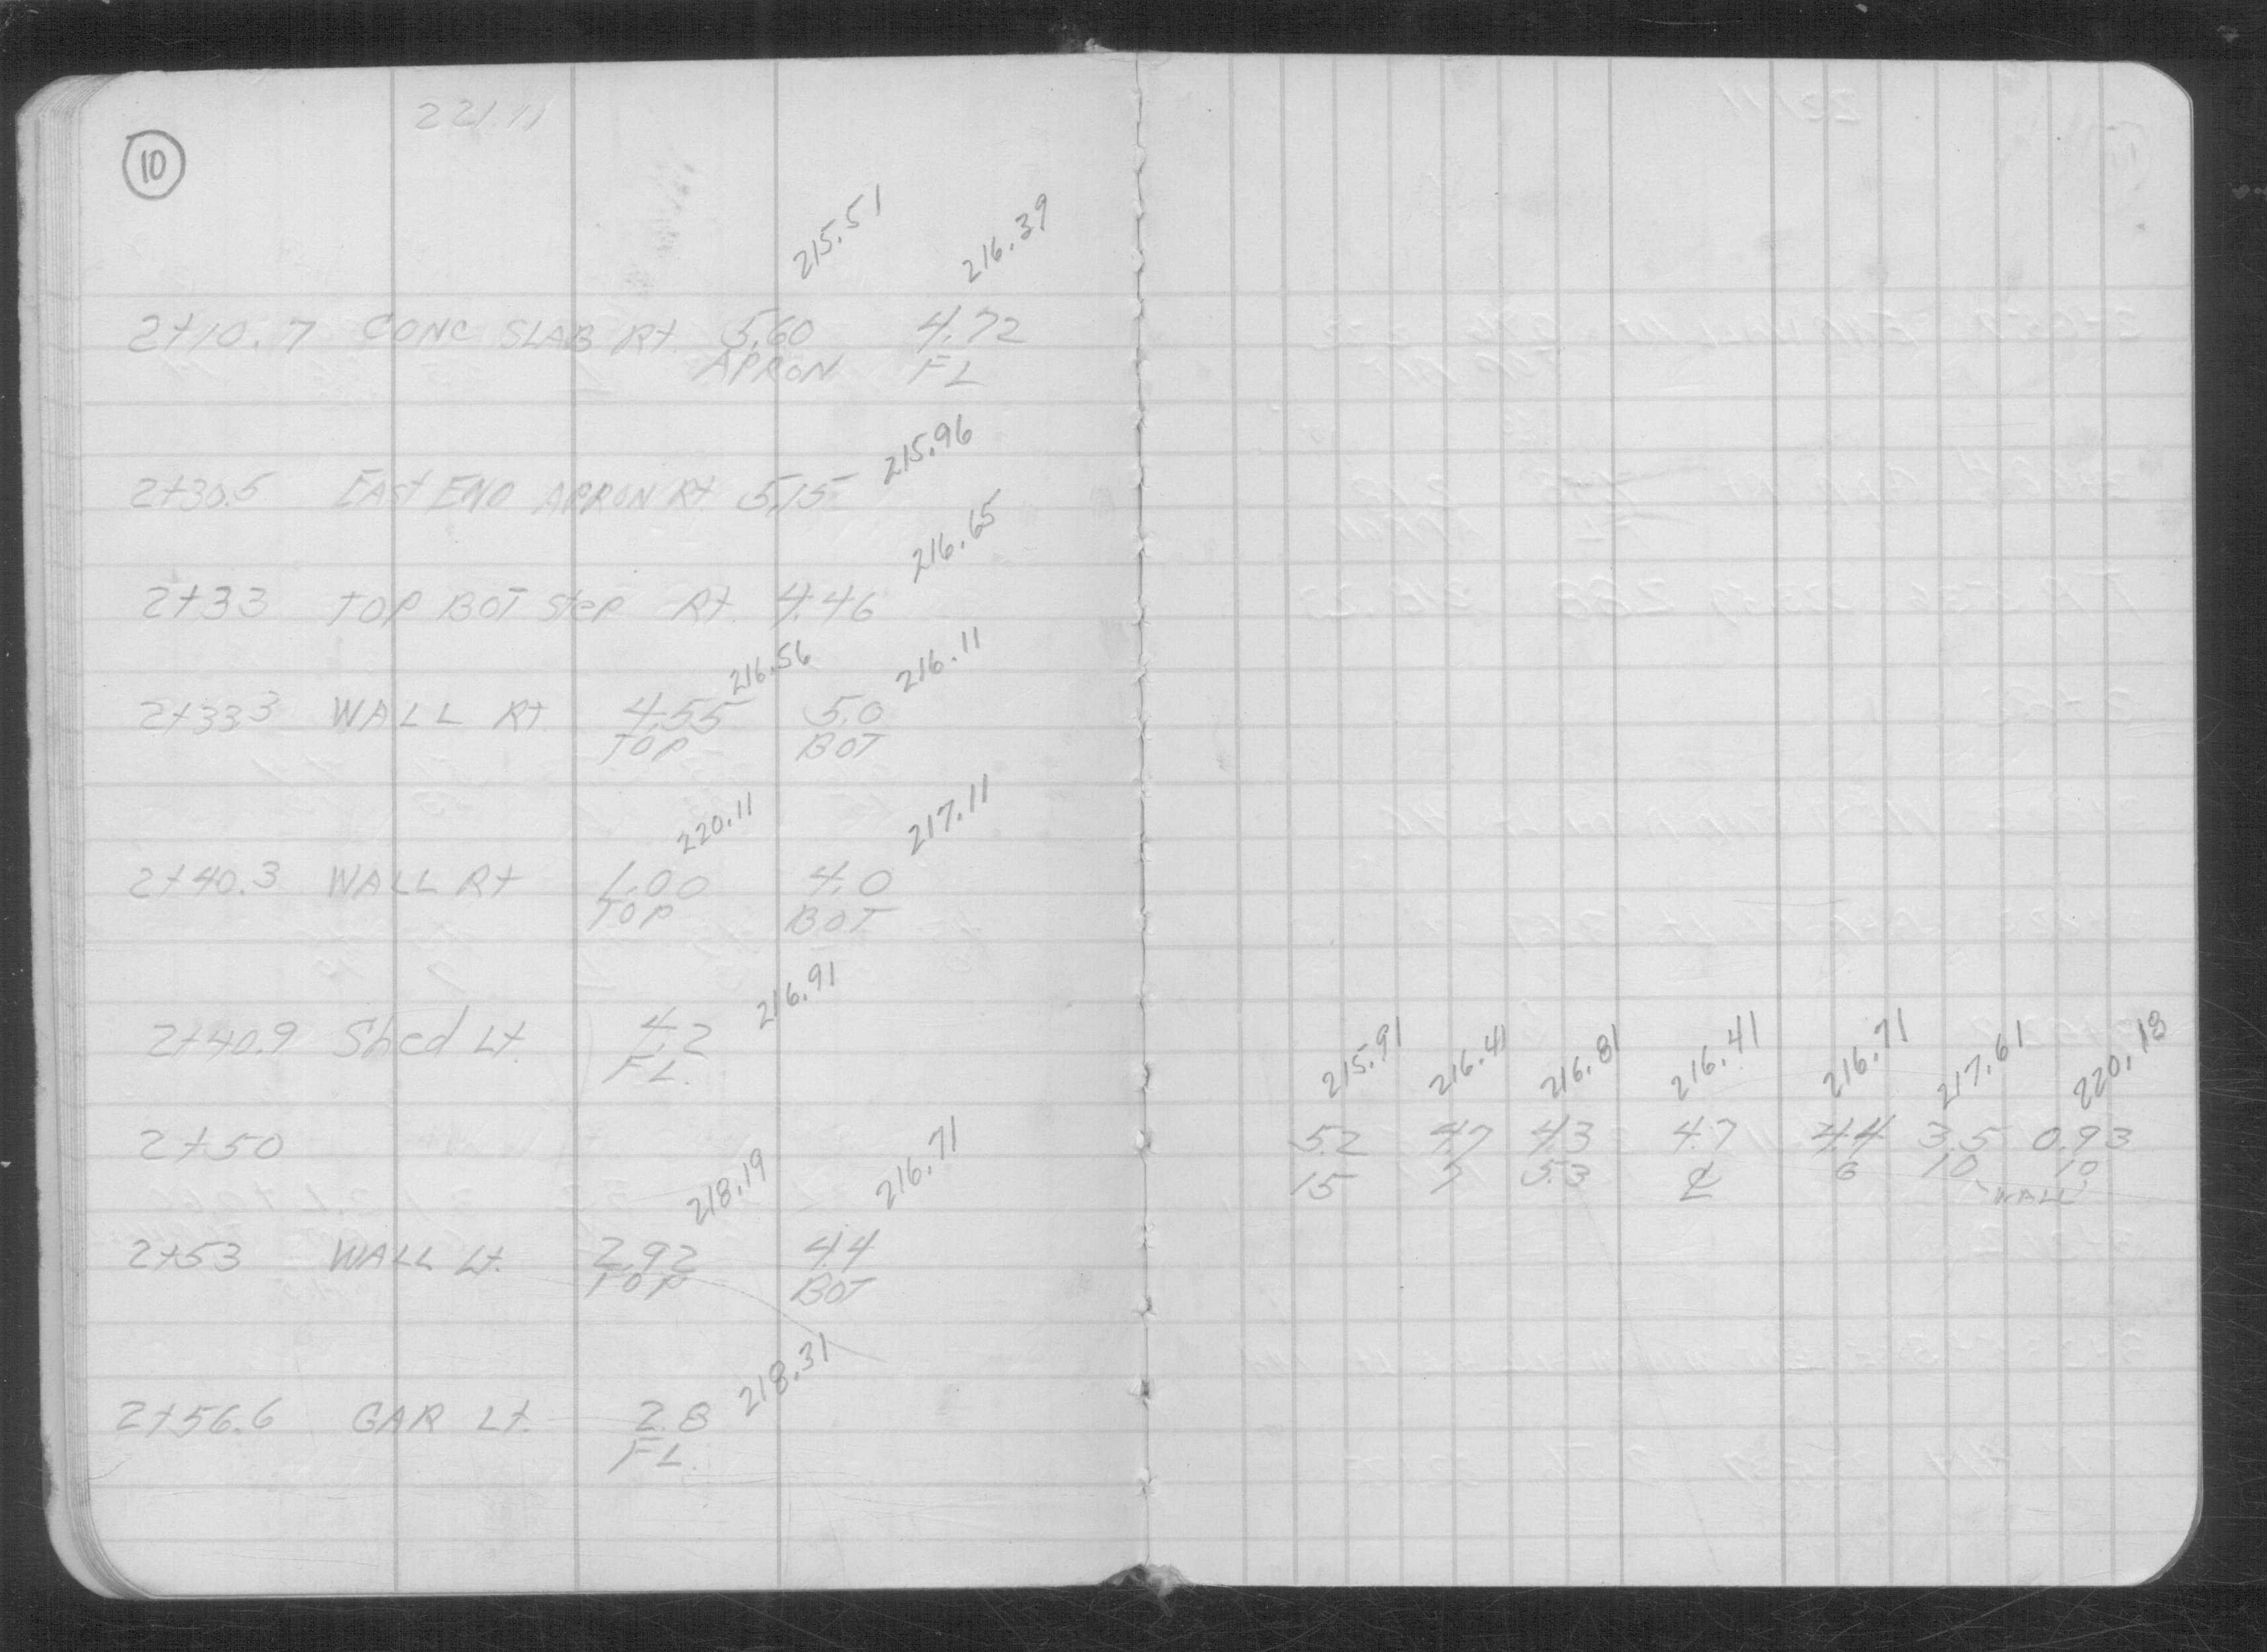 221.11
10
215.51 216.39
2+10.7 CONC SLAB Rt. 5.60 4.72
APRON FL
215.96
2+30.5 EAST END APRON Rt. 5.15
216.65
2+33 TOP BOT Step Rt. 4.46
216.56 216.11
2+33.3 WALL Rt. 4.55 5.0
TOP BOT
220.11 217.11
2+40.3 WALL Rt 1.00 4.0
TOP BOT
216.91
2+40.9 Shed Lt. 4.2
FL.
215.91 216.41 216.81 216.41 216.71 217.61 220.18
2+50 5.2 4.7 4.3 4.7 4.4 3.5 0.93
15 7 5.3 ℄ 6 10 10
WALL
218.19 216.71
2+53 WALL Lt. 2.92 4.4
TOP BOT
218.31
2+56.6 GAR Lt. 2.8
FL.